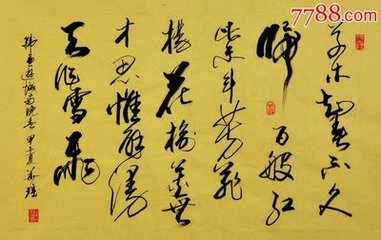 7788.com
草木知春不久
歸百般红
紫斗芳菲
楊花榆莢無
才思惟解漫
天作雪飛
韩愈游城南晚春甲午夏